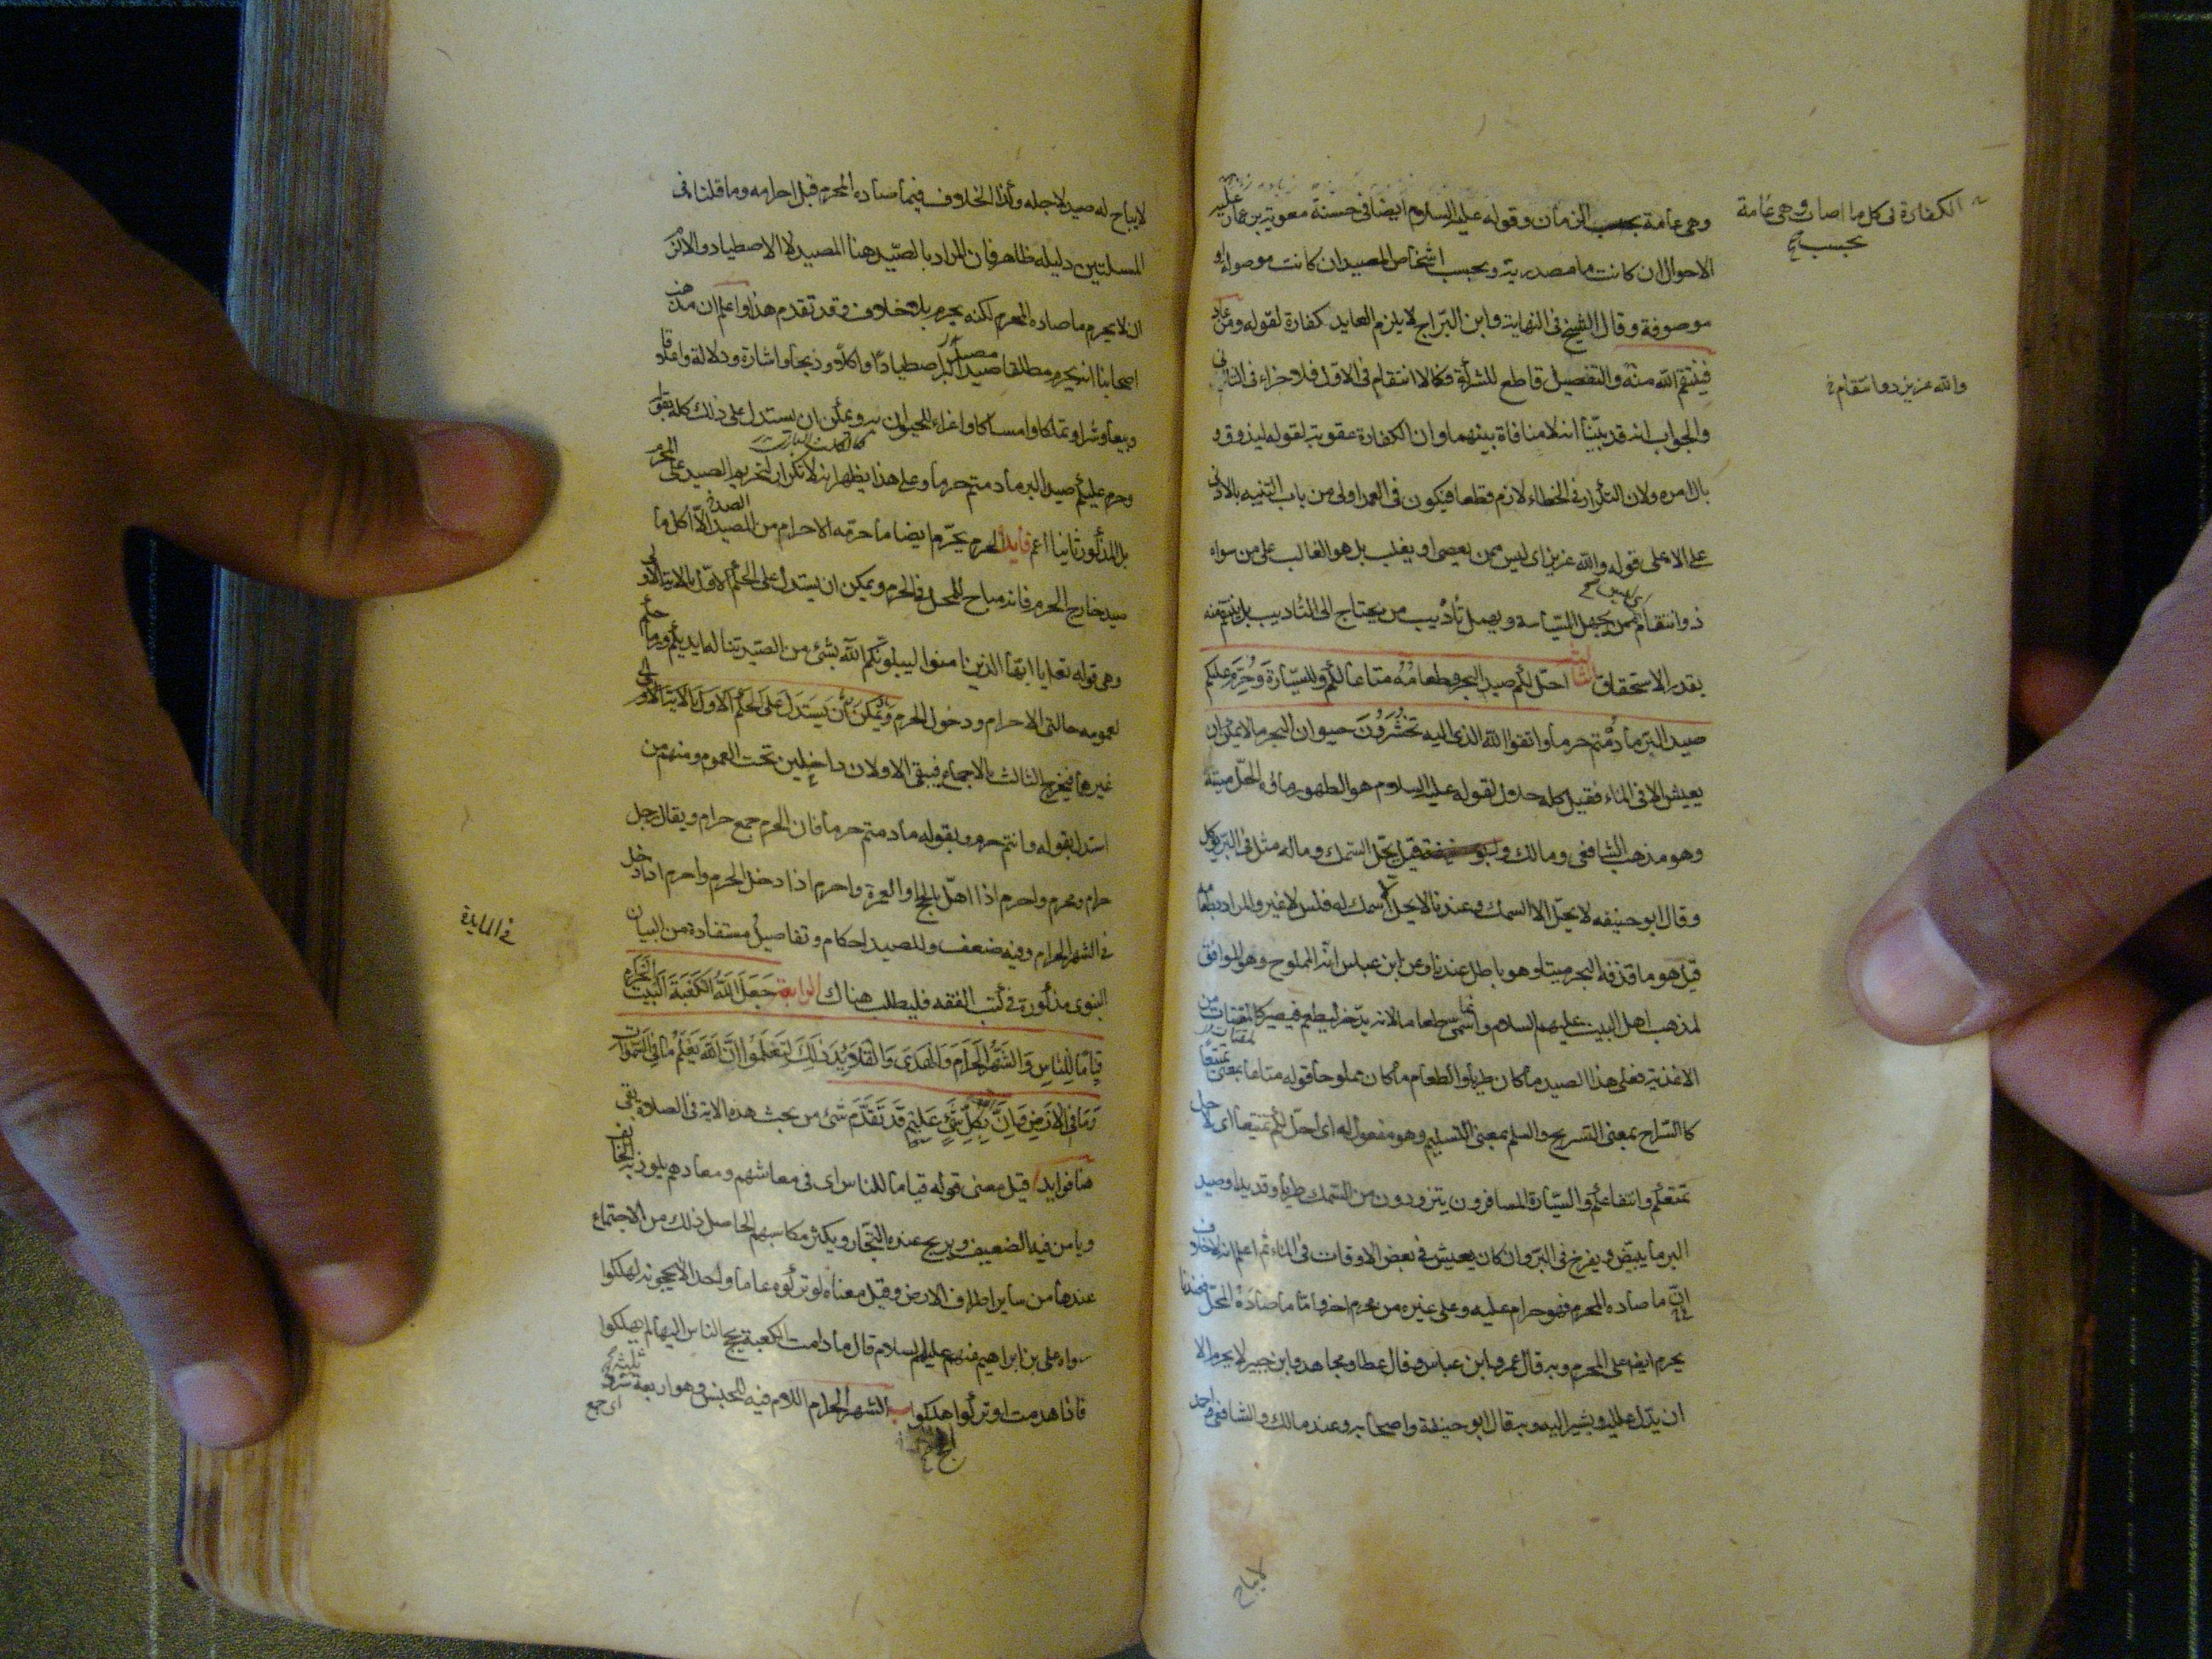 وهى عامة بحسب الزمان وقوله عليه السلام ايضا فى حسنة معوية بن عمار عليه
الكفارة فى كل ما اصاب وهى عامة
بحسب صح
الاحوال ان كانت ما مصدرية وبحسب اشخاص المصيد ان كانت موصولة او
موصوفة وقال الشيخ فى النهاية وابن البراج لا يلزم العايد كفارة لقوله ومن عاد
فينتقم الله منه والتفصيل قاطع للشركة فكما لا انتقام فى الاول فلا جزاء فى الثانى
والله عزيز ذو انتقام
والجواب انه قد بيّنا انه لا منافاة بينهما وان الكفارة عقوبة لقوله ليذوق و
بال امره ولان التكرار فى الخطاء لازم قطعا فيكون فى العمد اولى من باب التنبيه بالادنى
على الاعلى قوله والله عزيز اى ليس ممن يعصى او يغلب بل هو الغالب على من سواه
ذو انتقام ممن يجهل السياسة ويهمل تأديب من يحتاج الى التأديب بل ينتقم منه
بقدر الاستحقاق الثالثة احل لكم صيد البحر وطعامه متاعا لكم وللسيارة وحرم عليكم
صيد البر ما دمتم حرما واتقوا الله الذى اليه تحشرون حيوان البحر ما لا يمكن ان
يعيش الا فى الماء فقيل كله حلال لقوله عليه السلام هو الطهور ماؤه الحل ميتته
وهو مذهب الشافعى ومالك وقيل يحل السمك وما له مثل فى البر يوكل
وقال ابو حنيفه لا يحل الا السمك وعندنا لا يحل الا سمك له فلس لا غير والمراد بطعامه
قيل هو ما قذفه البحر ميتا وهو باطل عندنا وعن ابن عباس انه المملوح وهو الموافق
لمذهب اهل البيت عليهم السلام وانما سمى طعاما لانه يدخر ليطعم فيصير كالمقتات من
الاغذية فعلى هذا الصيد ما كان طريا والطعام ما كان مملوحا قوله متاعا بمعنى تمتيعا
كالسراح بمعنى التسريح والسلم بمعنى التسليم وهو مفعول له اى احل لكم تمتيعا اى لاجل
تمتعكم وانتفاعكم والسيارة المسافرون يتزودون من السمك طريا وقديدا وصيد
البر ما يبيض ويفرخ فى البر وان كان يعيش فى بعض الاوقات فى الماء ثم اعلم انه لا خلاف
ان ما صاده المحرم فهو حرام عليه وعلى غيره من محرم اخر فاما ما صاده المحل فعندنا
يحرم ايضا على المحرم وبه قال عمر وابن عباس وقال عطا ومجاهد وابن جبير لا يحرم الا
ان يدل عليه او يشير اليه وبه قال ابو حنيفة واصحابه وعند مالك والشافعى واحمد
لا يباح
لا يباح له صيد لاجله وكذا الخلاف فيما صاده المحرم قبل احرامه وما قلنا فى
المسئلتين دليله ظاهر فان المراد بالصيد هنا المصيد لا الاصطياد والا لزم
ان لا يحرم ما صاده المحرم لكنه يحرم بلا خلاف وقد تقدم هذا واعلم ان مذهب
اصحابنا انه يحرم مطلقا صيد البر اصطيادا واكلا وذبحا واشارة ودلالة واغلاقا
وبيعا وشراء وتملكا وامساكا واغراء للحيوان به ويمكن ان يستدل على ذلك كله بقوله
وحرم عليكم صيد البر ما دمتم حرما وعلى هذا يظهر انه لا تكرار لتحريم الصيد على المحرم
بل المذكور ثانيا اعم فايدة الحرم يحرم ايضا ما حرمه الاحرام من الصيد الا اكل ما
صيد خارج الحرم فانه مباح للمحل فى الحرم ويمكن ان يستدل على الحكم الاول بالاية الاولى
وهى قوله تعالى يا ايها الذين امنوا ليبلونكم الله بشىء من الصيد تناله ايديكم ورماحكم
لعمومه حالتى الاحرام ودخول الحرم ويمكن بأن يستدل على الحكم الاول بالاية الاولى
غيرها فيخرج الثالث بالاجماع فيبقى الاولان داخلين تحت العموم ومنهم من
استدل بقوله وانتم حرم وبقوله ما دمتم حرما فان الحرم جمع حرام ويقال رجل
حرام ومحرم واحرم اذا اهل بالحج او العمرة واحرم اذا دخل الحرم واحرم اذا دخل
فى الماىدة
فى الشهر الحرام وفيه ضعف وللصيد احكام وتفاصيل مستفادة من البيان
النبوى مذكورة فى كتب الفقه فليطلب هناك الرابعة جعل الله الكعبة البيت الحرام
قياما للناس والشهر الحرام والهدى والقلائد ذلك لتعلموا ان الله يعلم ما فى السموات
وما فى الارض وان الله بكل شىء عليم قد تقدم شىء من بحث هذه الاية فى الصلاة بقى
هنا فوايد ا قيل معنى قوله قياما للناس اى فى معاشهم ومعادهم يلوذ به الخائف
ويامن فيه الضعيف ويربح عنده التجار ويكثر مكاسبهم الحاصل ذلك من الاجتماع
عندها من ساير اطراف الارض وقيل معناه لو تركوه عاما واحدا لا يحجونه لهلكوا
رواه على بن ابراهيم عنهم عليهم السلام قال ما دامت الكعبة يحج الناس اليها لم يهلكوا
فاذا هدمت او تركوا هلكوا ب الشهر الحرام اللام فيه للجنس وهو اربعة ثلثة سرد
اى جمع